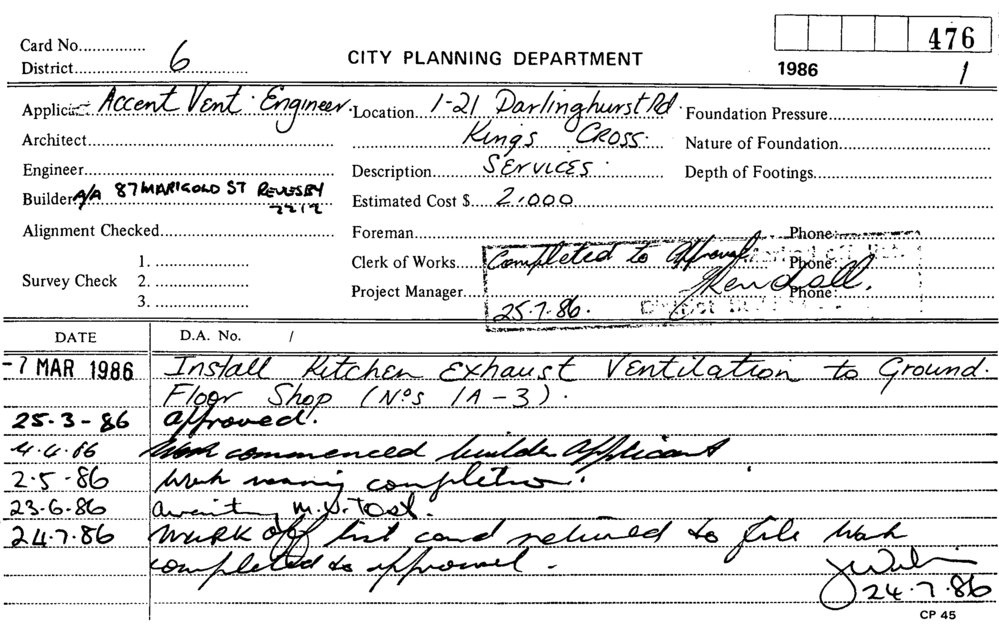 Card No............... 476
District 6 CITY PLANNING DEPARTMENT 1986 1
Applicant Accent Vent. Engineer. Location 1-21 Darlinghurst Rd. Foundation Pressure
Architect Kings Cross. Nature of Foundation
Engineer Description Services. Depth of Footings
Builder A/A 87 MARIGOLD ST REVESBY 2212 Estimated Cost $ 2,000
Alignment Checked Foreman Phone
Survey Check 1. Clerk of Works Completed to approval Phone
2. Project Manager Kendall. Phone
3. 25.7.86.
DATE D.A. No. /
-7 MAR 1986 Install Kitchen Exhaust Ventilation to Ground.
Floor Shop (Nos 1A-3).
25.3-86 approved.
4.4.86 Work commenced builder Applicant
2.5-86 Work nearing completion.
23-6.86 awaiting M.V. Test.
24.7.86 mark off list card returned to file Work
completed to approval.
24.7.86
CP 45